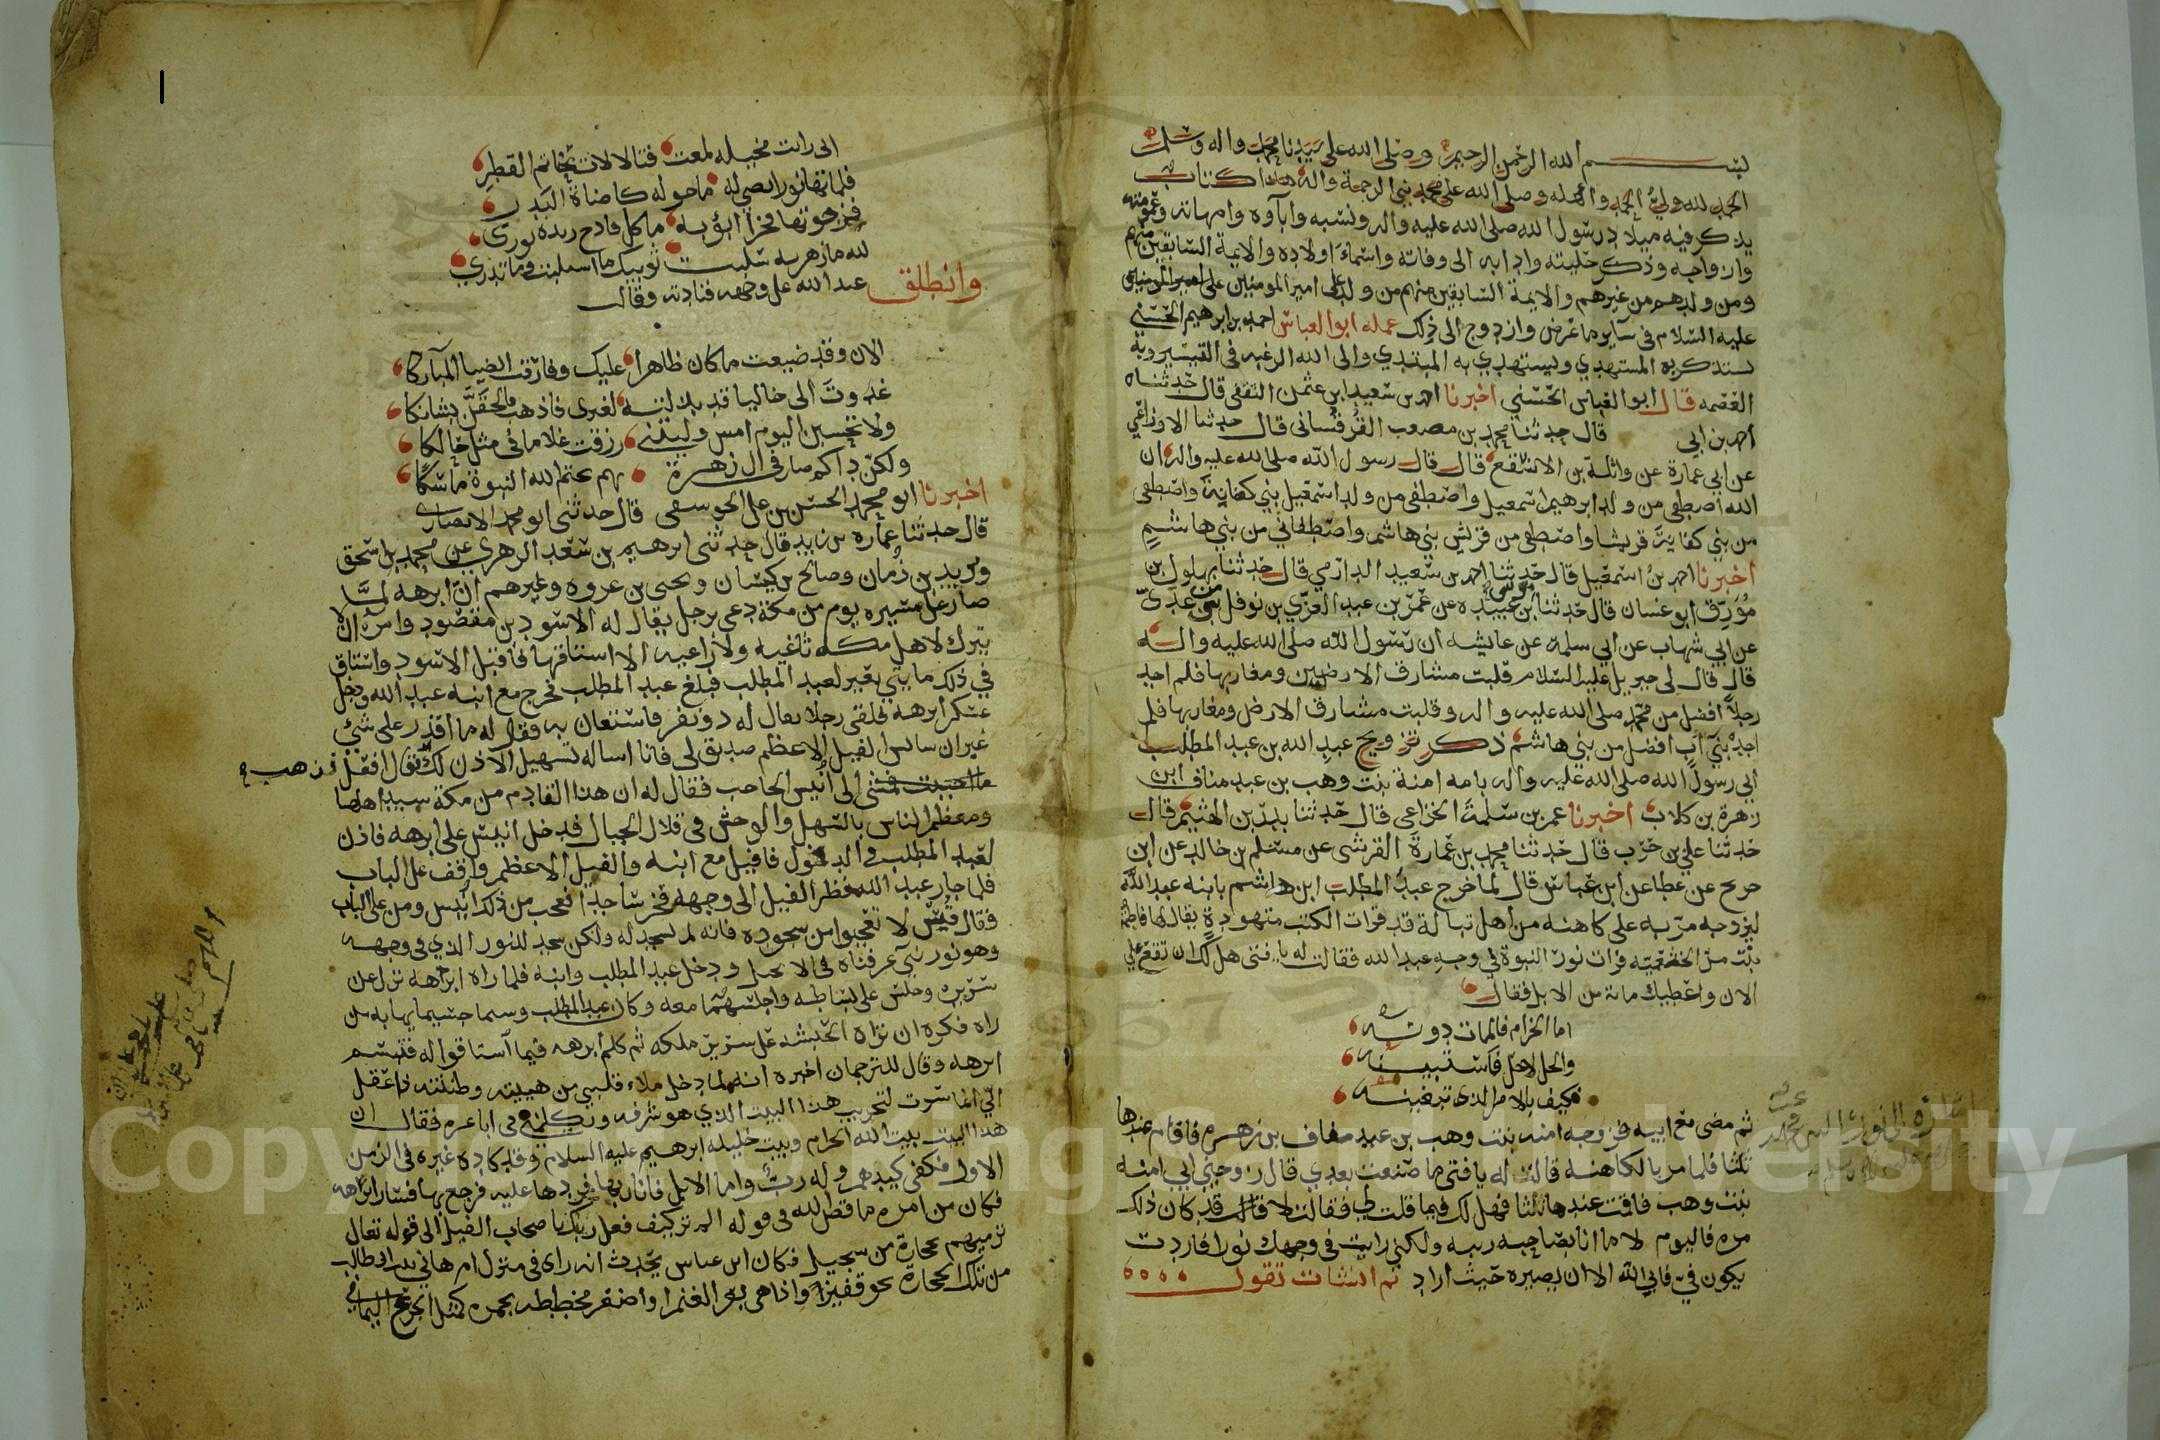 بسم الله الرحمن الرحيم وصلى الله على سيدنا محمد واله وسلم
الحمد لله ولي الحمد واهله وصلى الله على محمد نبي الرحمة واله هذا كتاب
يذكر فيه ميلاد رسول الله صلى الله عليه واله ونسبه وآباوه وامهاته وعمومته
وازواجه وذكر حليته وادابه الى وفاته واسماء اولاده والايمة السابقين منهم
ومن ولدهم من غيرهم والايمة السابقين منهم من ولد على امير المومنين على امير المومنين
عليه السلام في ساير ما عرض وازدوج الى ذلك عمله ابو العباس احمد بن ابرهيم الحسني
يستذكر به المستهدي ويستهدي به المبتدي والى الله الرغبه في التيسير وبه
العصمه قال ابو العباس الحسني اخبرنا احمد بن سعيد ابن عثمن الثقفى قال حدثناه
احمد بن ابي قال حدثنا محمد بن مصعب القرقساني قال حدثنا الاوزاعي
عن ابي عمارة عن واثلة بن الاسقع قال قال رسول الله صلى الله عليه واله ان
الله اصطفى من ولد ابرهيم اسمعيل واصطفى من ولد اسمعيل بني كنانة واصطفى
من بني كنانة قريشا واصطفى من قريش بني هاشم واصطفاني من بني هاشم
اخبرنا احمد بن اسمعيل قال حدثنا احمد بن سعيد الدارمي قال حدثنا بهلول بن
مورق ابو غسان قال حدثنا موسى بن عبيده عن عمر بن عبد العزي بن نوفل من بني عدي
عن ابي شهاب عن ابي سلمة عن عايشه ان رسول الله صلى الله عليه واله
قال قال لي جبريل عليه السلام قلبت مشارق الارضين ومغاربها فلم اجد
رجلا افضل من محمد صلى الله عليه واله وقلبت مشارق الارض ومغاربها فلم
اجد بني آب افضل من بني هاشم ذكر تزويج عبد الله بن عبد المطلب
ابي رسول الله صلى الله عليه واله بامه امنة بنت وهب بن عبد مناف ابن
زهرة بن كلاب اخبرنا عمر بن سلمة الخزاعي قال حدثنا بن الهيثم قال
حدثنا علي بن حرب قال حدثنا محمد بن عمارة القرشى عن مسلم بن خالد عن ابن
جريج عن عطا عن ابن عباس قال لما خرج عبد المطلب ابن هاشم بابنه عبد الله
ليزوجه مر به على كاهنه من اهل تبالة قد قرات الكتب متهودة يقال لها فاطمة
بنت مر الخثعميه فرات نور النبوة في وجه عبد الله فقالت له يا فتى هل لك ان تقع علي
الان واعطيك مائة من الابل فقال
اما الحرام فالممات دونه
والحل لا حل فاستبينه
فكيف بالامر الذي تبغينه
ثم مضى مع ابيه فزوجه امنه بنت وهب بن عبد مناف بن زهره فاقام عندها
ثلثا فلما مر بالكاهنه قالت له يا فتى ما صنعت بعدي قال زوجني ابي امنه
بنت وهب فاقمت عندها ثلثا فهل لك فيما قلت لي فقالت لا قد كان ذلك
مره فاليوم لا ما انا بصاحبة ريبه ولكني رايت في وجهك نورا فاردت
يكون في فابى الله الا ان يصيره حيث اراد ثم انشات تقول
اني رايت مخيله لمعت فتلالات بحناتم القطر
فلمائها نور ايضي له ما حوله كاضاة البدر
فرجوتها فخرا ابوء به ما كل قادح زنده يوري
لله ما زهريه سلبت ثوبيك ما استلبت وما تدري
وانطلق عبد الله على وجهه فنادته وقال
الان وقد ضيعت ما كان ظاهرا عليك وفارقت الضيا المباركا
غدوت الى خاليا قد بذلته لغيري فاذهب فالحقن بشانكا
ولا تحسبن اليوم امس وليتني رزقت غلاما في مثل حالكا
ولكن ذاكم صار في ال زهرة بهم يختم الله النبوة ناسكا
اخبرنا ابو محمد الحسن بن علي الجوسقي قال حدثني ابو محمد الانصاري
قال حدثنا عماره بن زيد قال حدثني ابرهيم بن سعد الزهري عن محمد بن اسحق
ويزيد بن رومان وصالح بن كيسان ويحيى بن عروه وغيرهم ان ابرهه لما
صار على مسيره يوم من مكة دعى برجل يقال له الاسود بن مقصود وامره ان لا
يترك لاهل مكه ثاغيه ولا راغيه الا استاقها فاقبل الاسود واستاق
في ذلك مايتي بعير لعبد المطلب فبلغ عبد المطلب فخرج مع ابنه عبد الله ودخل
عسكر ابرهه فلقي رجلا يقال له ذو نفر فاستعان به فقال له ما اقدر على شئ
غير ان سايس الفيل الاعظم صديق لي فانا اساله تسهيل الاذن لك فقال افعل فذهب
الى انيس الحاجب فقال له ان هذا القادم من مكة سيد اهلها
ومعظم الناس بالسهل والوحش في قلال الجبال فدخل انيس على ابرهه فاذن
لعبد المطلب في الدخول فاقبل مع ابنه والفيل الاعظم واقف على الباب
فلما جاز عبد الله نظر الفيل الى وجهه فخر ساجدا فعجب من ذلك انيس ومن على الباب
فقال قس لا تعجبوا من سجوده فانه لم يسجد له ولكن سجد للنور الذي في وجهه
وهو نور نبي عرفناه في الانجيل ودخل عبد المطلب وابنه فلما راه ابرهه نزل عن
سريره وجلس على بساطه واجلسهما معه وكان عبد المطلب وسيما جسيما يهابه من
راه فكره ان تراه الحبشه على سرير ملكه ثم كلم ابرهه فيما استاقوا له فتبسم
ابرهه وقال للترجمان اخبره انه لما دخل ملاء قلبي من هيبته وظننته ذا عقل
اني انما سرت لتخريب هذا البيت الذي هو شرفه وتكلم في اباعره فقال ان
هذا البيت بيت الله الحرام وبيت خليله ابرهيم عليه السلام وقد كاده غيره في الزمن
الاول فكفي كيدهم وله رب واما الابل فانا ربها فردها عليه فرجع بها فسار ابرهه
فكان من امره ما قص الله في قوله الم تر كيف فعل ربك باصحاب الفيل الى قوله تعالى
ترميهم بحجارة من سجيل فكان ابن عباس يحدث انه راى في منزل ام هاني بنت ابي طالب
من تلك الحجارة نحو قفيز واذا هي بعر الغنم او اصغر مخططه بحمره كمثل الجزع اليماني
Copyright © King Saud University